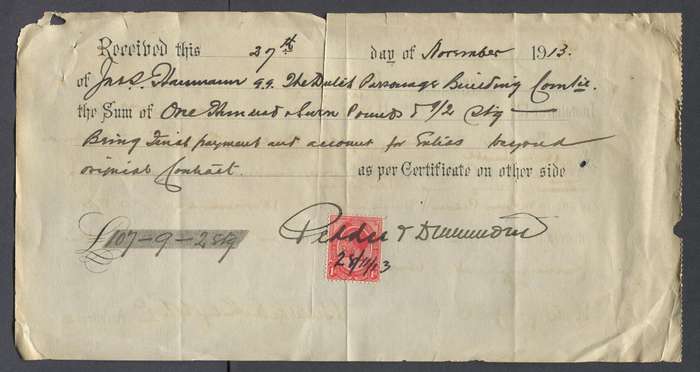 Received this 27th day of November 1913.
of Jas S. Hammann q.q. The Dutch Parsonage Building Comtie.
the Sum of One Hundred & Seven Pounds & 9/2 Stg
Being Final payment and account for Extras beyond
original Contract. as per Certificate on other side
£107-9-2 Stg
& Drummond
28/11/13